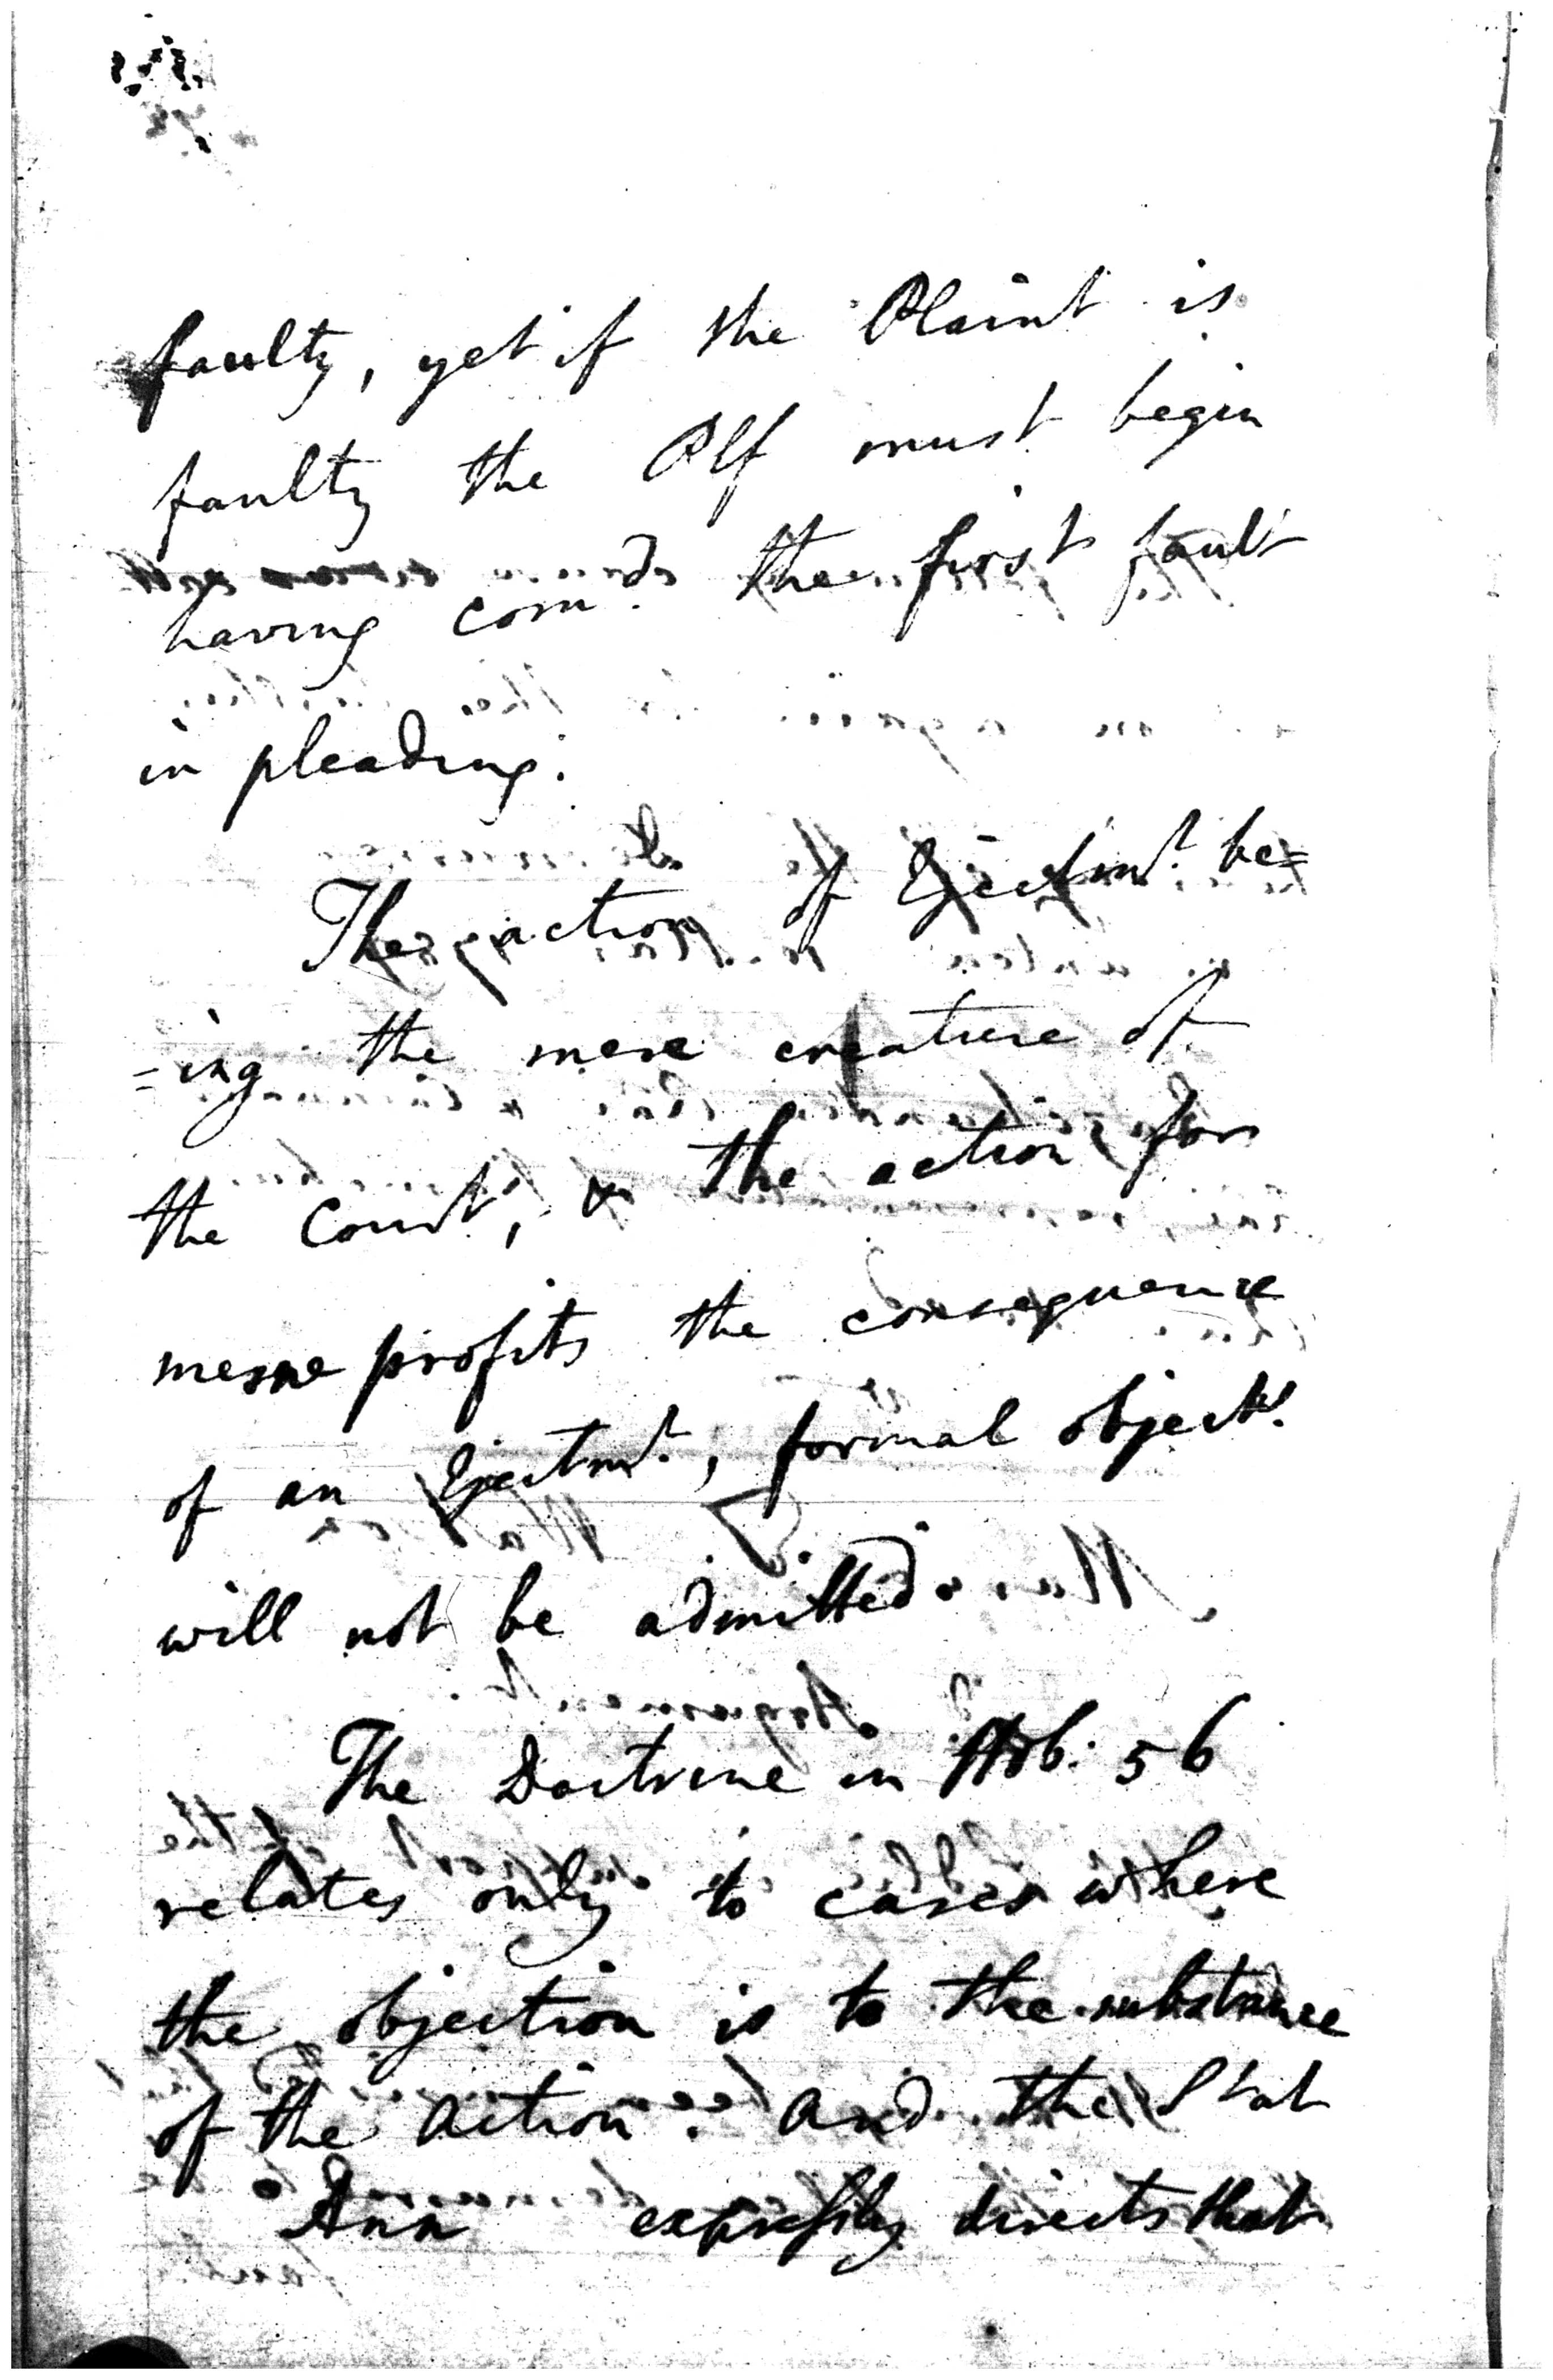 faulty, yet if the Plaint is
faulty the Plf must begin
having com.d the first fault
in pleading.
The action of Ejectm.t be=
=ing the mere creature of
the Court, & the action for
mesne profits the consequence
of an Ejectm.t, formal object.s
will not be admitted.
The Doctrine in Hob: 56
relates only to cases where
the objection is to the substance
of the action. and the Stat
Ann expressly directs that